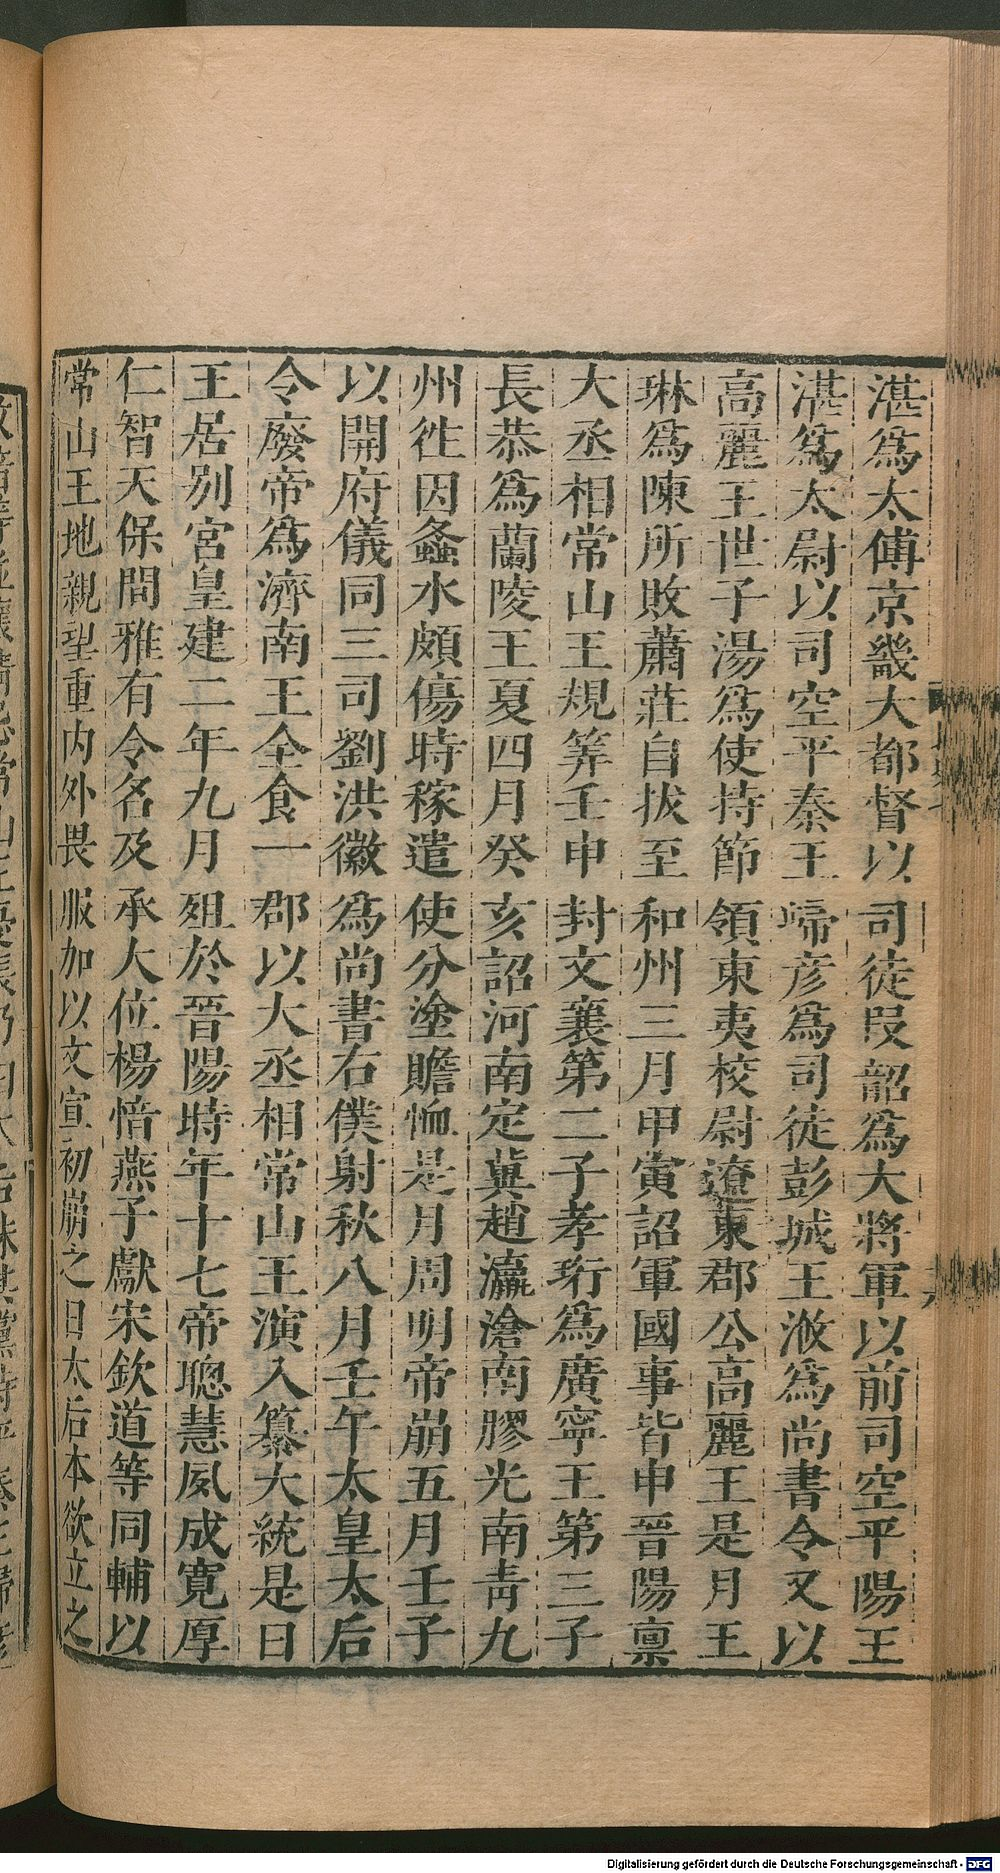 湛爲太傅京畿大都督以司徒叚韶爲大將軍以前司空平陽王
湛爲太尉以司空平秦王㱕彦爲司徒彭城王浟爲尚書令又以
高麗王世子湯爲使持節領東夷校尉遼東郡公高麗王是月王
琳爲陳所敗蕭莊自拔至和州三月甲寅詔軍國事皆申晉陽禀
大丞相常山王規筭壬申封文襄第二子孝珩爲廣寧王第三子
長恭爲蘭陵王夏四月癸亥詔河南定冀趙瀛滄南膠光南青九
州徃因螽水頗傷時稼遣使分塗贍恤是月周明帝崩五月壬子
以開府儀同三司劉洪徽爲尚書右僕射秋八月壬午太皇太后
令廢帝爲濟南王全食一郡以大丞相常山王演入纂大統是日
王居别宮皇建二年九月殂於晉陽時年十七帝聰慧夙成寬厚
仁智天保間雅有令名及承大位楊愔燕子獻宋欽道等同輔以
常山王地親望重内外畏服加以文宣初崩之日太后本欲立之
Digitalisierung gefördert durch die Deutsche Forschungsgemeinschaft - DFG